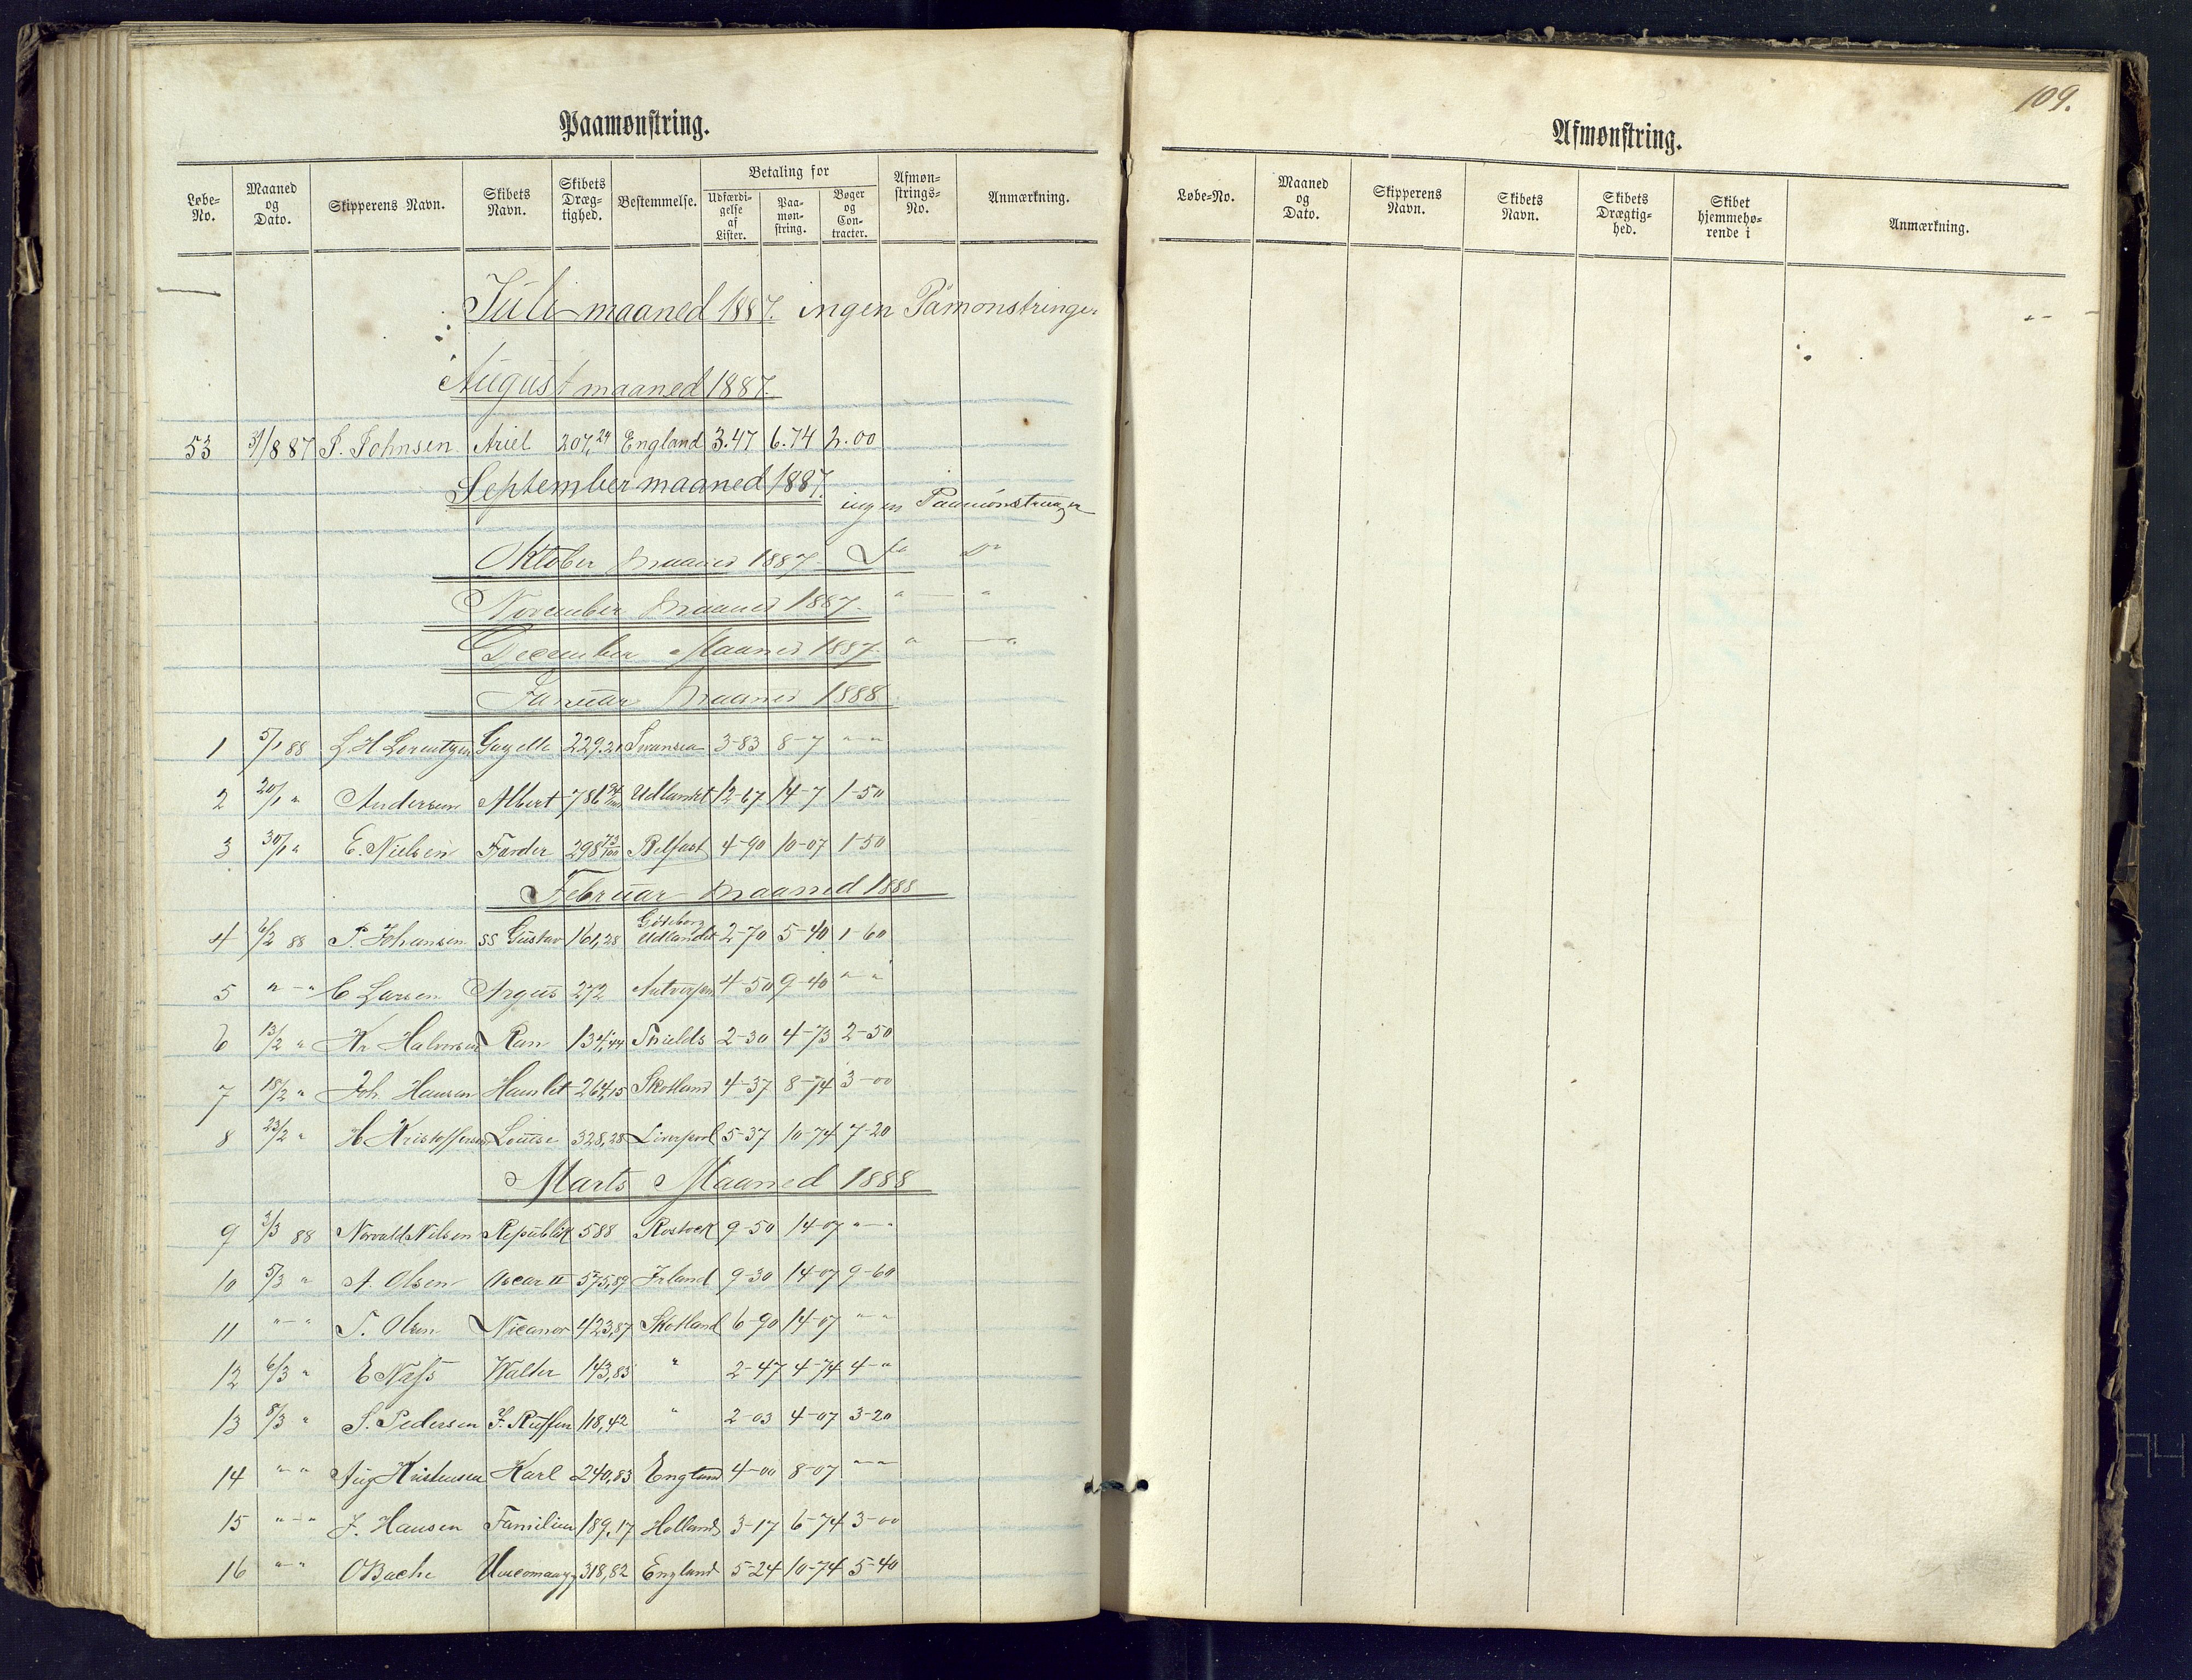 109.
Paamønstring.
Løbe-No. Maaned og Dato. Skipperens Navn. Skibets Navn. Skibets Dræg-tighed. Bestemmelse. Betaling for Udfærdi-gelse af Lister. Paa-møn-string. Bøger og Con-tracter. Afmøn-strings-No. Anmærkning.
Juli maaned 1887. ingen Påmonstringer
August maaned 1887.
53 31/8 87 J. Johnsen Ariel 207,24 England 3.47 6.74 2.00
September maaned 1887. ingen Paamönstringer
Oktober Maaned 1887. Do Do
November Maaned 1887. " — "
December Maaned 1887. " — "
Januar Maaned 1888
1 5/1 88 L H Lorentzen Gazelle 229.21 Svansea 3-83 8-7 " — "
2 20/1 " Andersen Albert 786 94/100 Udlandet 12-67 14-7 1-50
3 30/1 " E. Nielsen Færder 298 73/100 Belfast 4-90 10-07 1-50
Februar Maaned 1888
4 6/2 88 P. Johansen SS Gustav 161,28 Göteborg Udlandet 2-70 5-40 1-60
5 " — " C Larsen Argus 272 Antverpen 4-50 9-40 " — "
6 13/2 " Kr Halvorsen Ran 134,44 Shields 2-30 4-73 2-50
7 18/2 " Joh. Hansen Hamlet 264,15 Skotland 4-37 8-74 3-00
8 23/2 " H Kristoffersen Louise 328,28 Liverpool 5-37 10-74 7-20
Marts Maaned 1888
9 3/3 88 Norvald Nilsen Republik 588 Rostock 9-50 14-07 " — "
10 5/3 " A. Olsen Oscar II 575,89 Irland 9-30 14-07 9-60
11 " — " T. Olsen Nicanor 423,87 Skotland 6-90 14-07 " — "
12 6/3 " E Næss Walter 143,83 " 2-47 4-74 4-"
13 8/3 " S. Pedersen 118,42 " 2-03 4-07 3-20
14 " — " Aug Kristensen Karl 240,83 England 4-00 8-07 " — "
15 " — " J. Hansen Familien 189,17 Holland 3-17 6-74 3-00
16 " — " O Bache 318,82 England 5-24 10-74 5-40
Afmønstring.
Løbe-No. Maaned og Dato. Skipperens Navn. Skibets Navn. Skibets Drægtig-hed. Skibet hjemmehø-rende i Anmærkning.